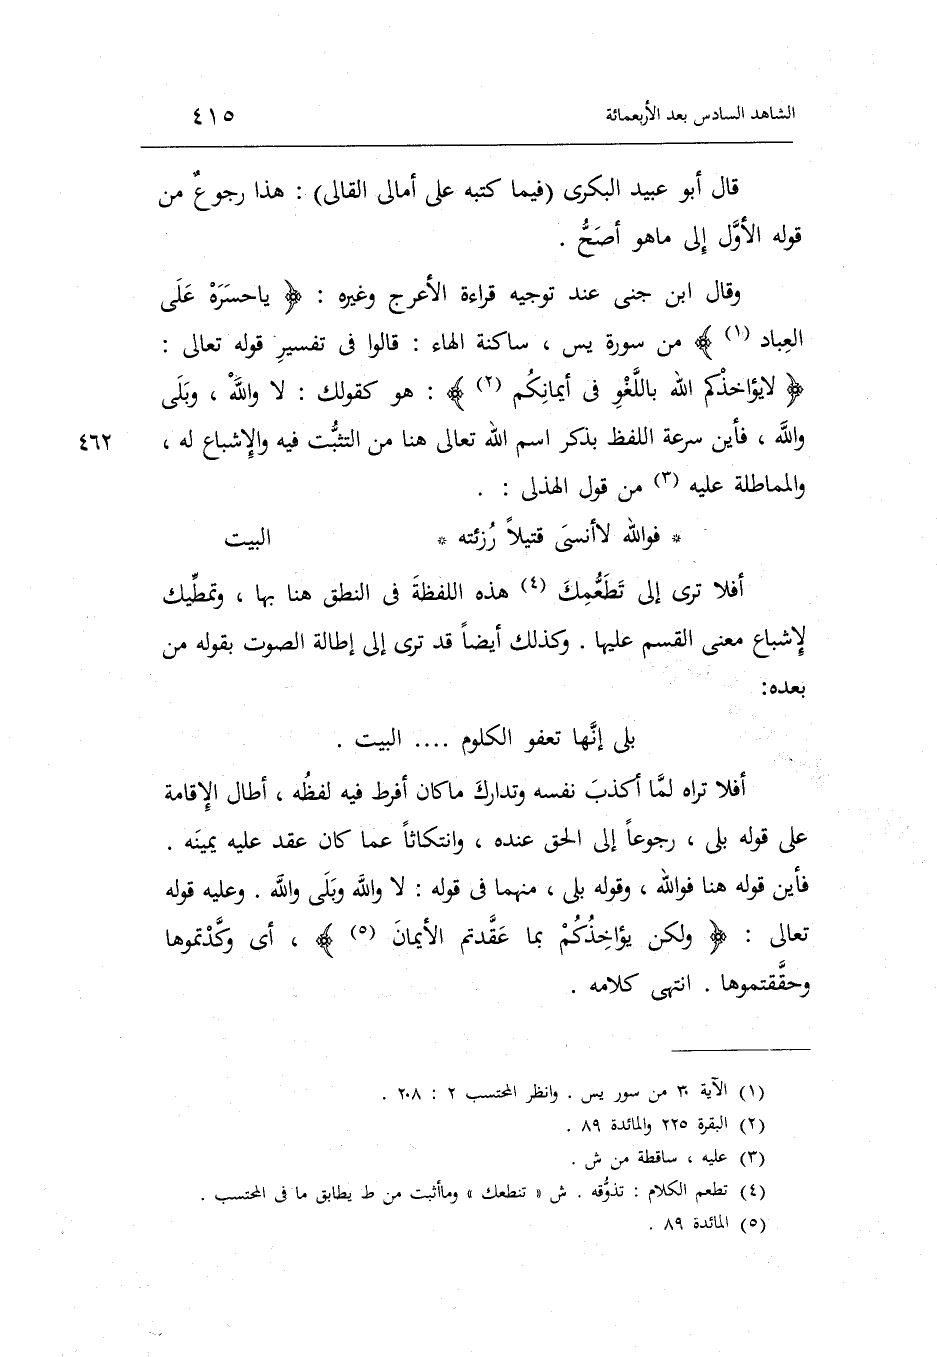 الشاهد السادس بعد الأربعمائة ٤١٥
قال أبو عبيد البكرى (فيما كتبه على أمالى القالى) : هذا رجوعٌ من
قوله الأوَّل إلى ماهو أصَحُّ .
وقال ابن جنى عند توجيه قراءة الأعرج وغيره : ﴿ ياحسَرَهْ عَلَى
العِباد (١) ﴾ من سورة يس ، ساكنة الهاء : قالوا فى تفسيرِ قوله تعالى :
﴿ لايؤاخذْكم الله باللَّغْوِ فى أيمانِكُم (٢) ﴾ : هو كقولك : لا واللَّهْ ، وبَلَى
واللَّه ، فأين سرعة اللفظ بذكر اسم الله تعالى هنا من التثبُّت فيه والإشباع له ، ٤٦٢
والمماطلة عليه (٣) من قول الهذلى : .
* فوالله لاأنسَى قتيلاً رُزئته * البيت
أفلا ترى إلى تَطَعُّمِكَ (٤) هذه اللفظةَ فى النطق هنا بها ، وتمطِّيك
لإشباع معنى القسم عليها . وكذلك أيضاً قد ترى إلى إطالة الصوت بقوله من
بعده:
بلى إنَّها تعفو الكلوم .... البيت .
أفلا تراه لمَّا أكذبَ نفسه وتداركَ ماكان أفرط فيه لفظُه ، أطال الإقامة
على قوله بلى ، رجوعاً إلى الحق عنده ، وانتكاثاً عما كان عقد عليه يمينَه .
فأين قوله هنا فوالله ، وقوله بلى ، منهما فى قوله : لا واللَّه وبَلَى واللَّه . وعليه قوله
تعالى : ﴿ ولكن يؤاخِذُكُمْ بما عَقَّدتم الأيمانَ (٥) ﴾ ، أى وكَّدْتموها
وحقَّقتموها . انتهى كلامه .
(١) الآية ٣٠ من سور يس . وانظر المحتسب ٢ : ٢٠٨ .
(٢) البقرة ٢٢٥ والمائدة ٨٩ .
(٣) عليه ، ساقطة من ش .
(٤) تطعم الكلام : تذوُّقه . ش « تنطعك » وماأثبت من ط يطابق ما فى المحتسب .
(٥) المائدة ٨٩ .